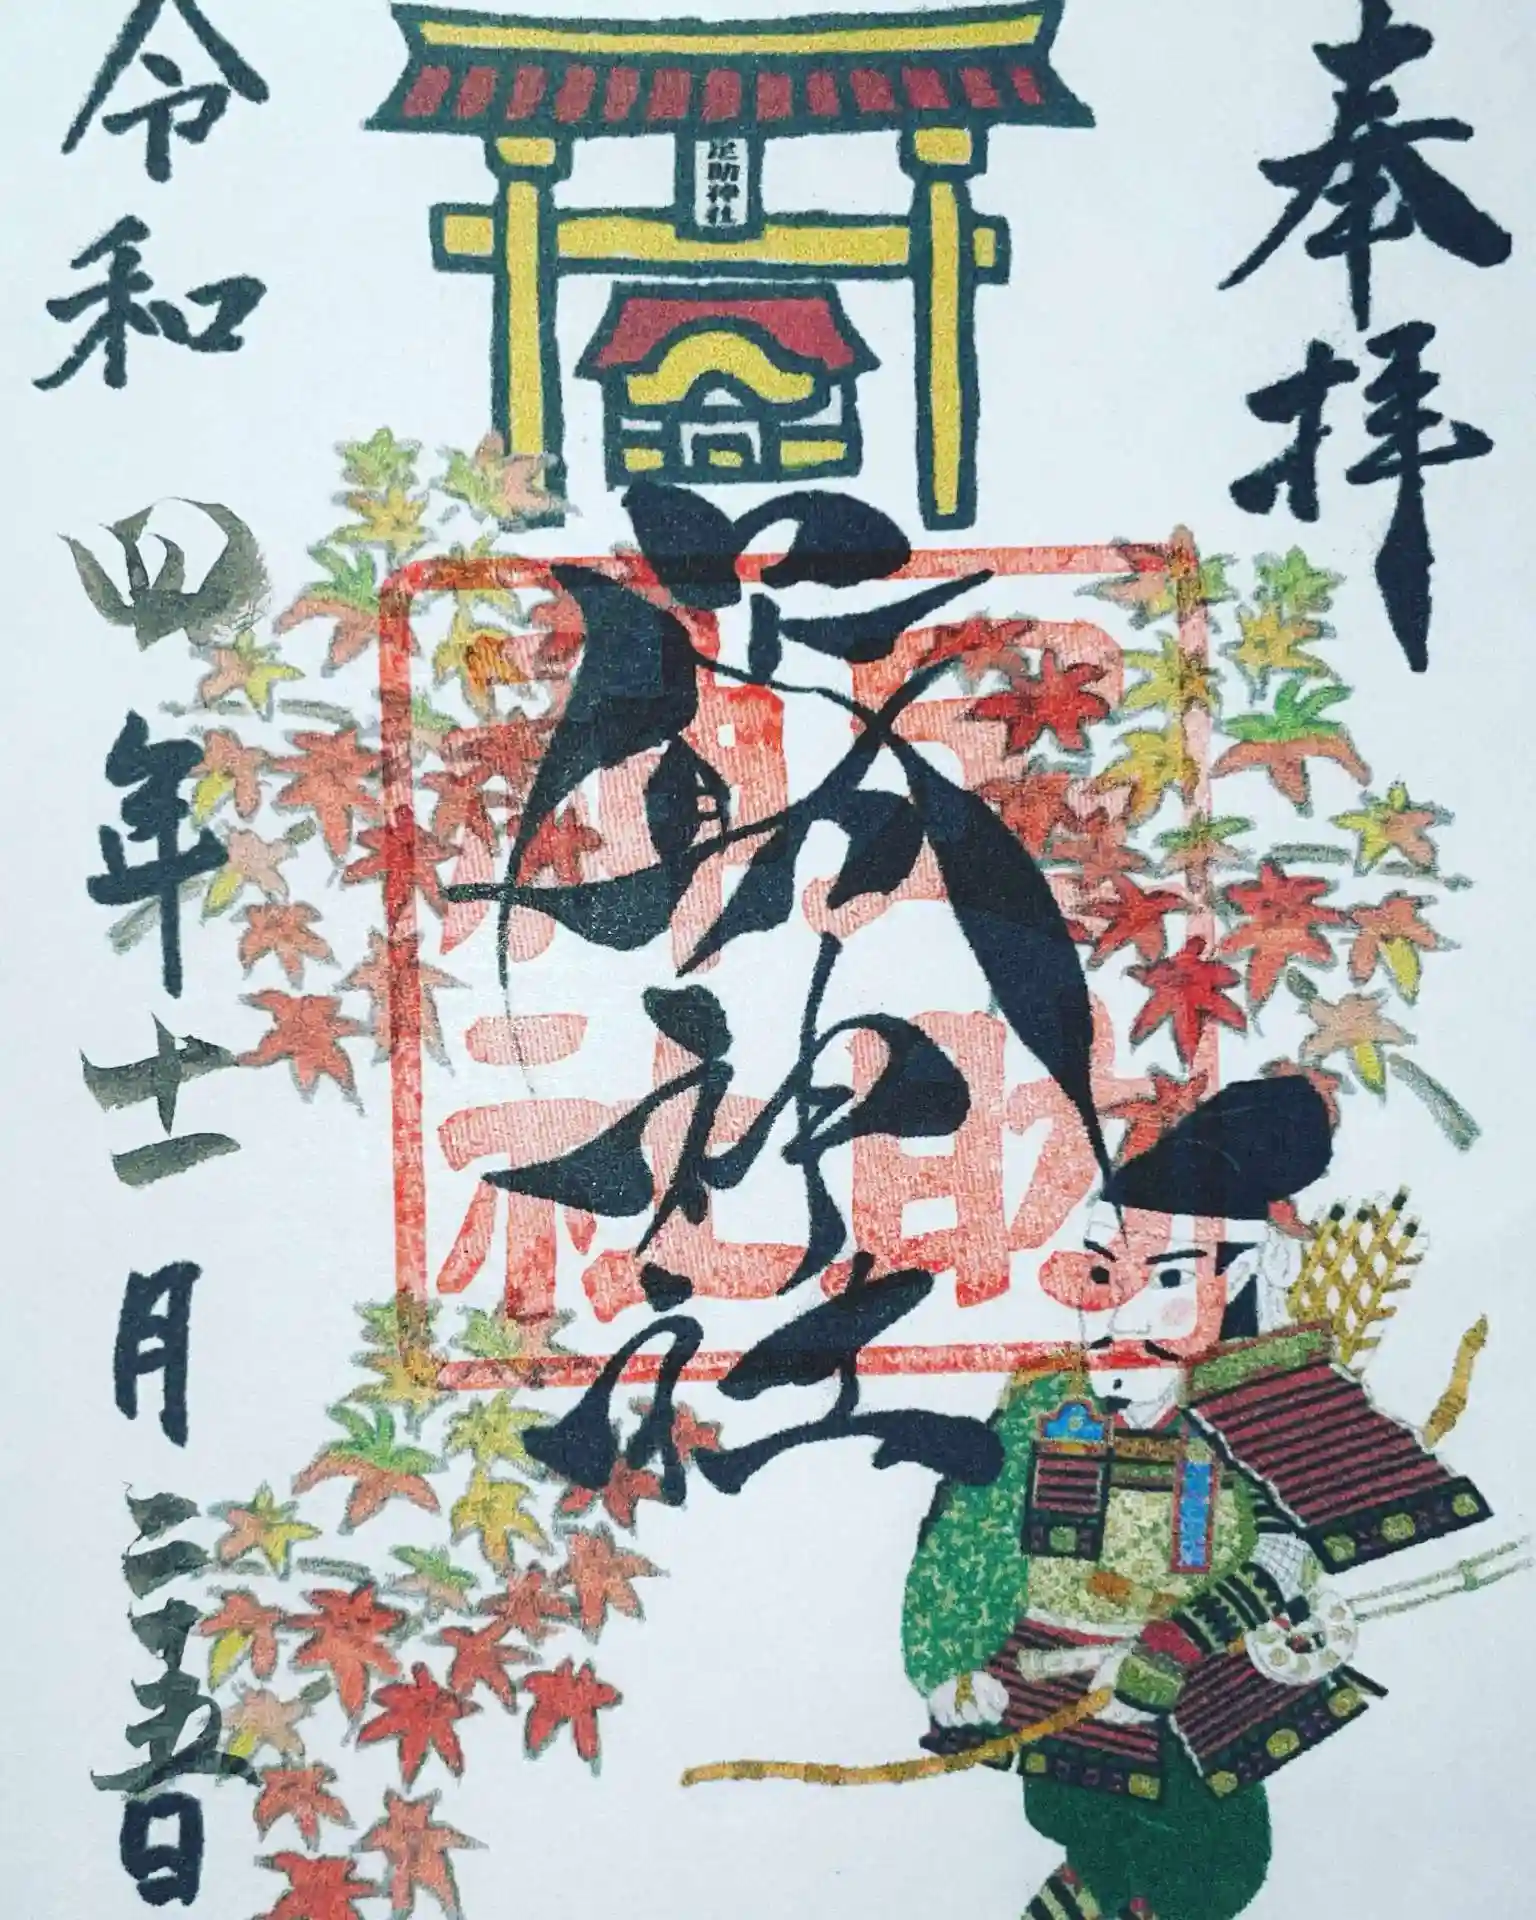 奉拝
足助神社
神社
足助
神社
令和四年十一月二十五日